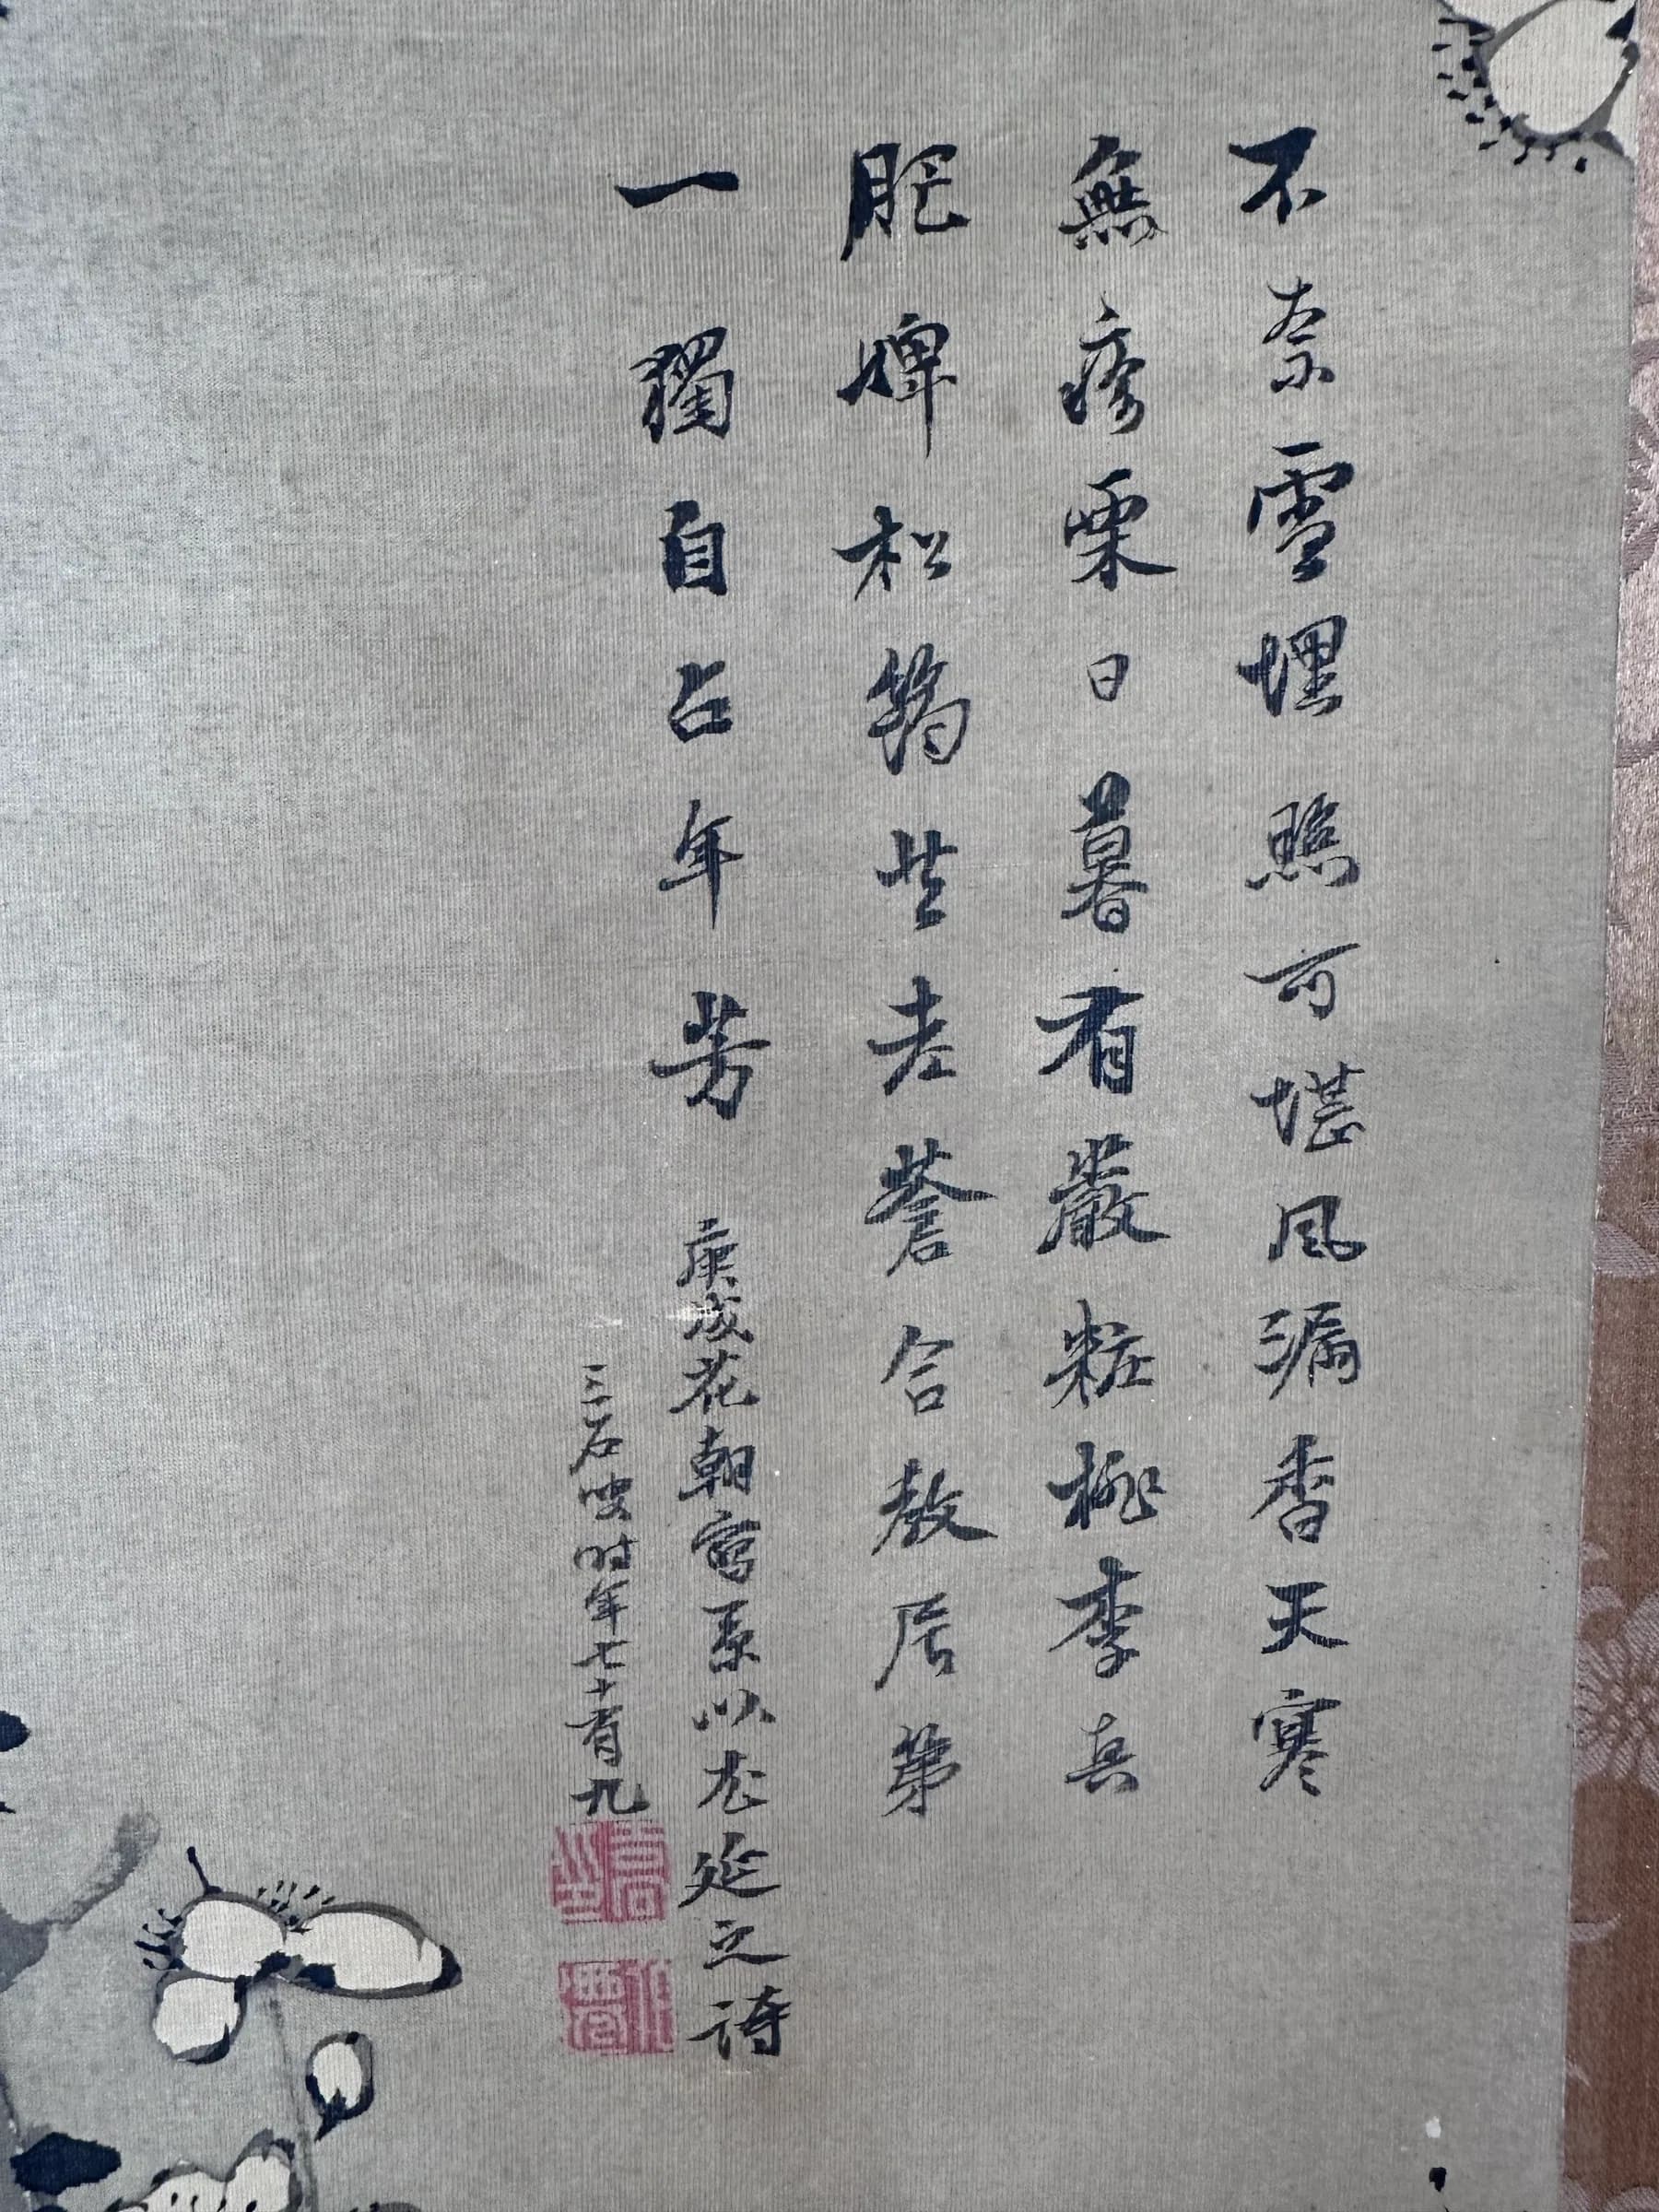 不奈雪埋照可堪風漏香天寒
無疹粟日暮有嚴粧桃李真
肥婢松筠共老蒼合教居第
一獨自占年芳
庚戌花朝寫系以尤延之詩
三石叟时年七十有九